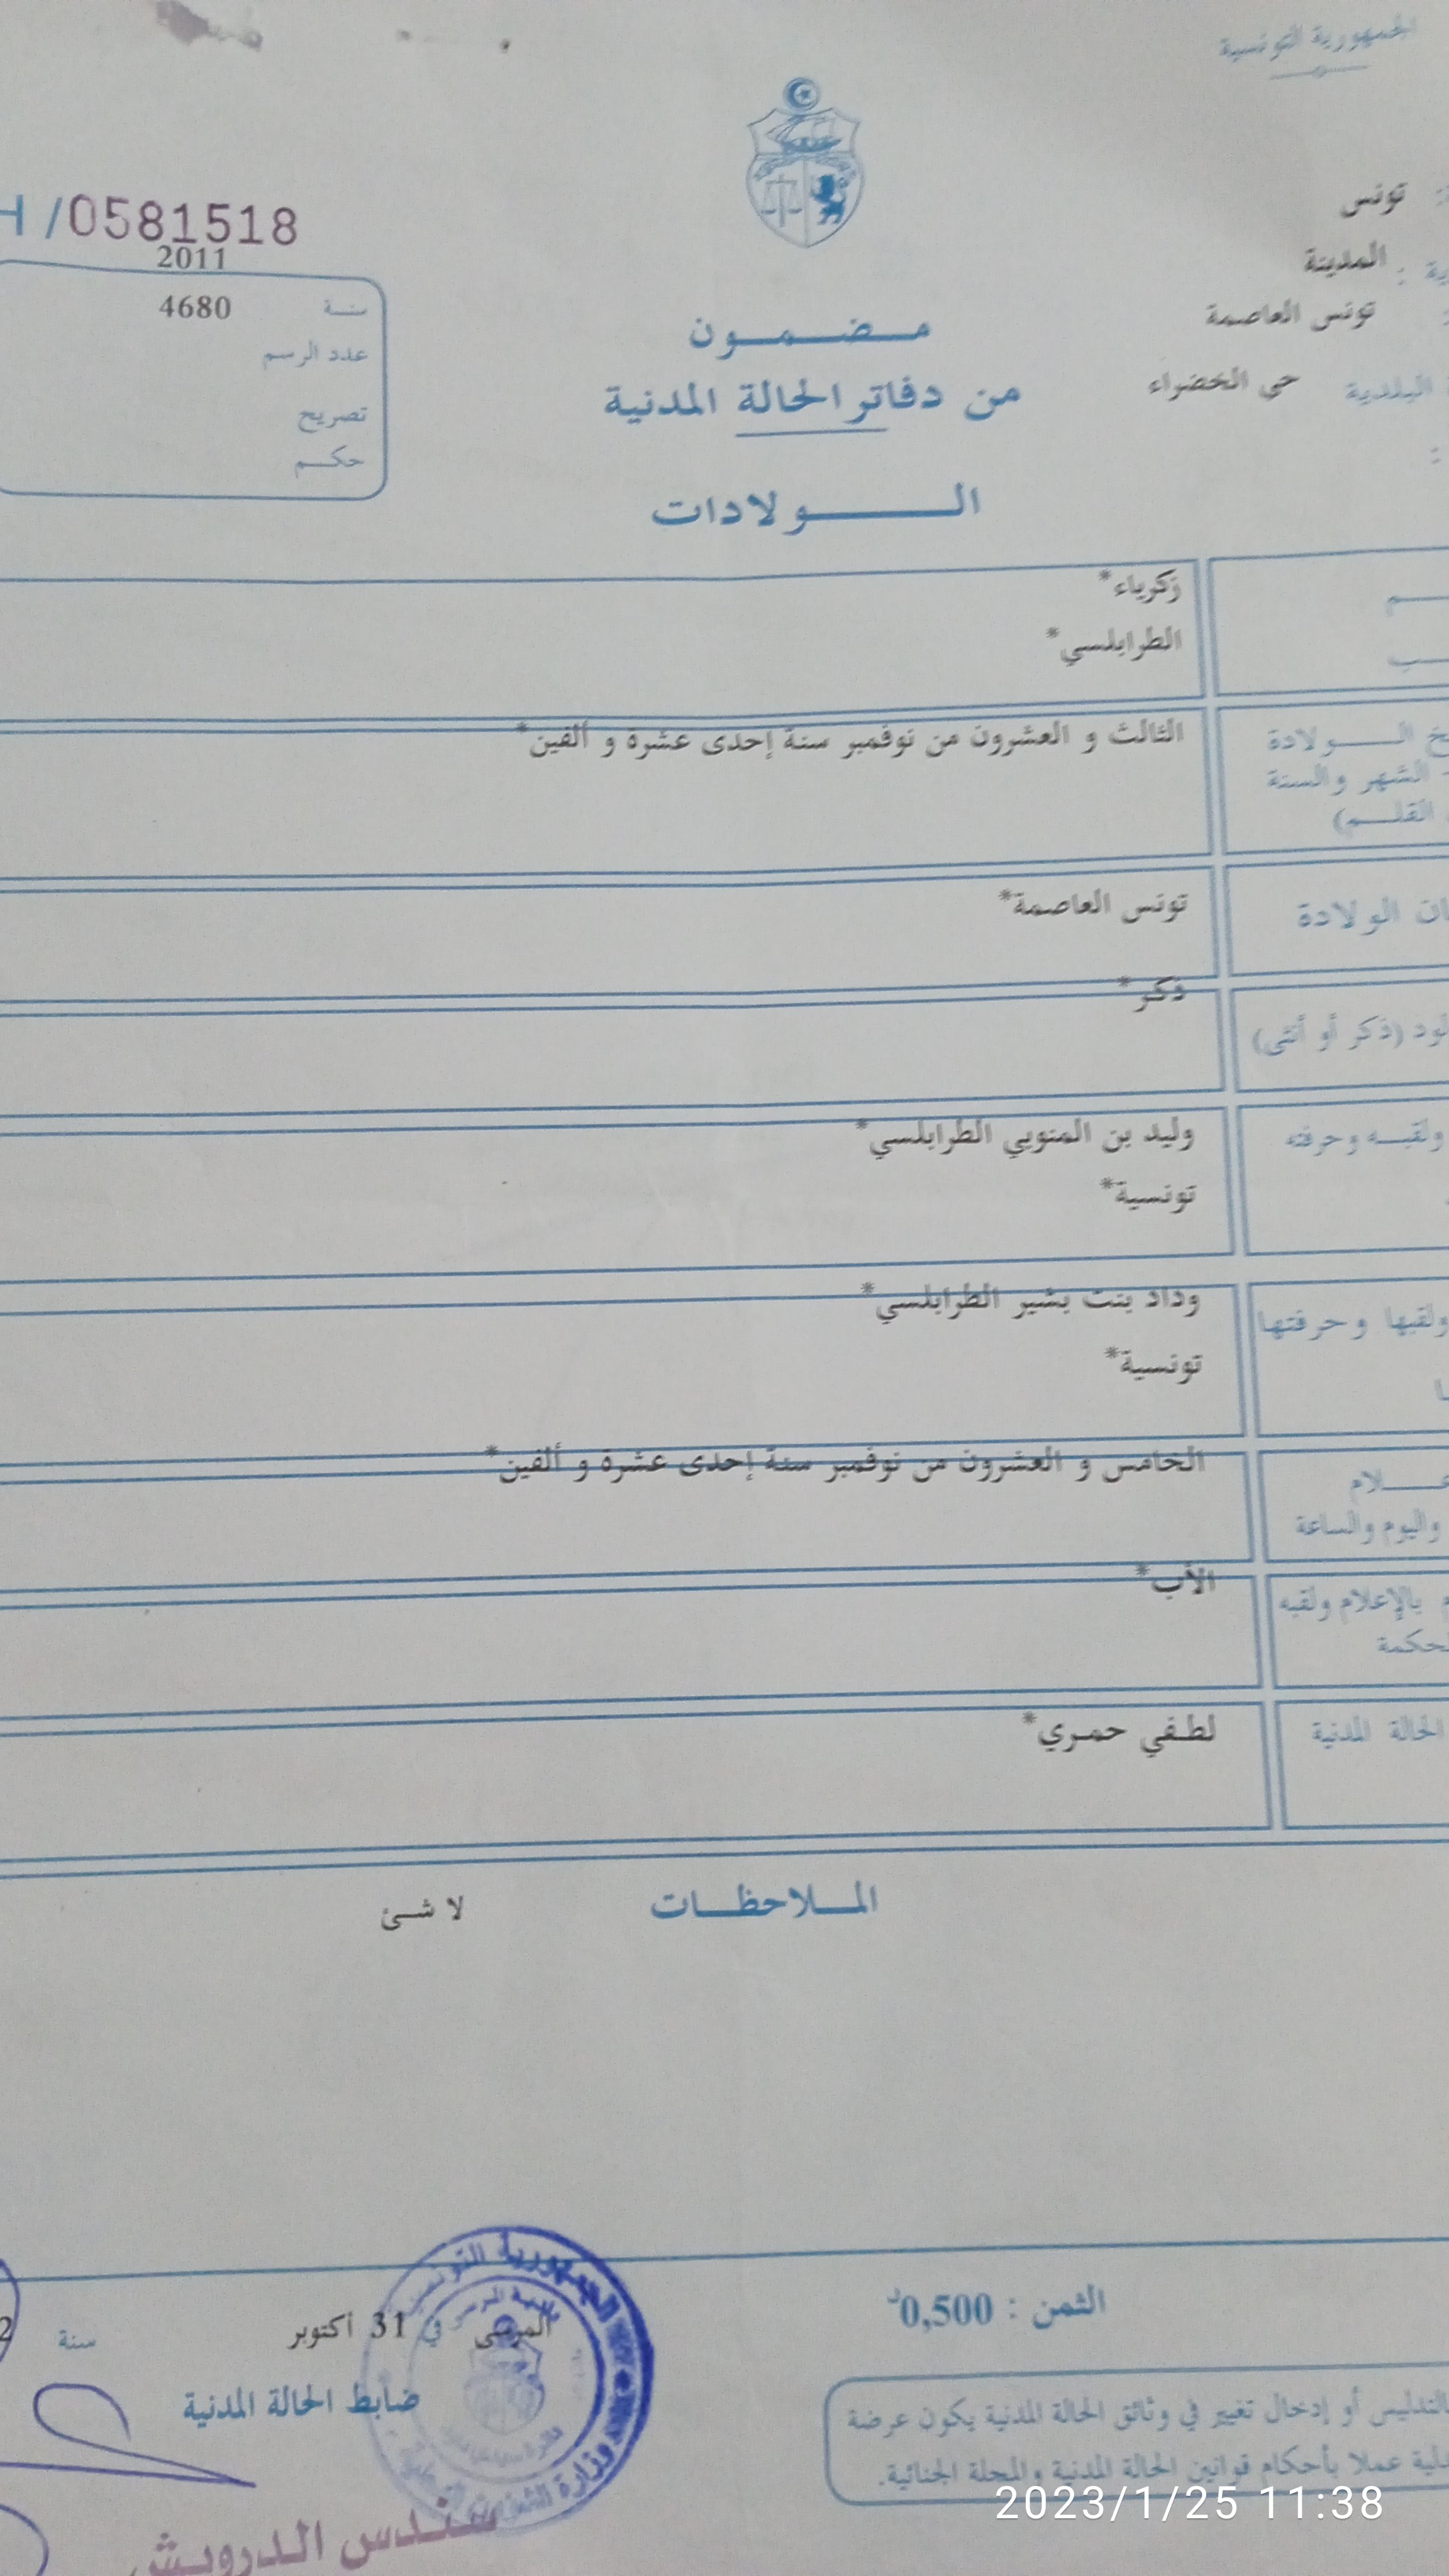 الجمهورية التونسية
تونس
المدينة
تونس العاصمة
البلدية حي الخضراء
H /0581518
2011
سنة 4680
عدد الرسم
تصريح
حكم
مضمون
من دفاتر الحالة المدنية
الولادات
زكرياء*
الطرابلسي*
الولادة
الشهر والسنة
القلم)
الثالث و العشرون من نوفمبر سنة إحدى عشرة و ألفين*
الولادة
تونس العاصمة*
(ذكر أو أنثى)
ذكر*
ولقبه وحرفته
وليد بن المنوبي الطرابلسي*
تونسية*
ولقبها وحرفتها
وداد بنت بشير الطرابلسي*
تونسية*
واليوم والساعة
الخامس و العشرون من نوفمبر سنة إحدى عشرة و ألفين*
بالإعلام ولقبه
الأب*
الحالة المدنية
لطفي حمري*
الملاحظات
لا شئ
الثمن : 0,500د
المرسى في 31 أكتوبر سنة
ضابط الحالة المدنية
الجمهورية التونسية
سندس الدرويش
أو إدخال تغيير في وثائق الحالة المدنية يكون عرضة
عملا بأحكام قوانين الحالة المدنية والمجلة الجنائية.
2023/1/25 11:38